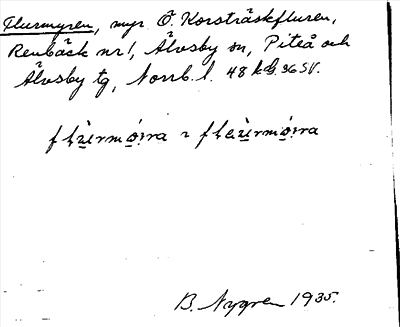 Flurmyren, myr Ö. Korsträskfluren,
Renbäck nr 1, Älvsby sn, Piteå och
Älvsby tg, Norrb. l. 48 k 36 SV.
B. Nygren 1935.